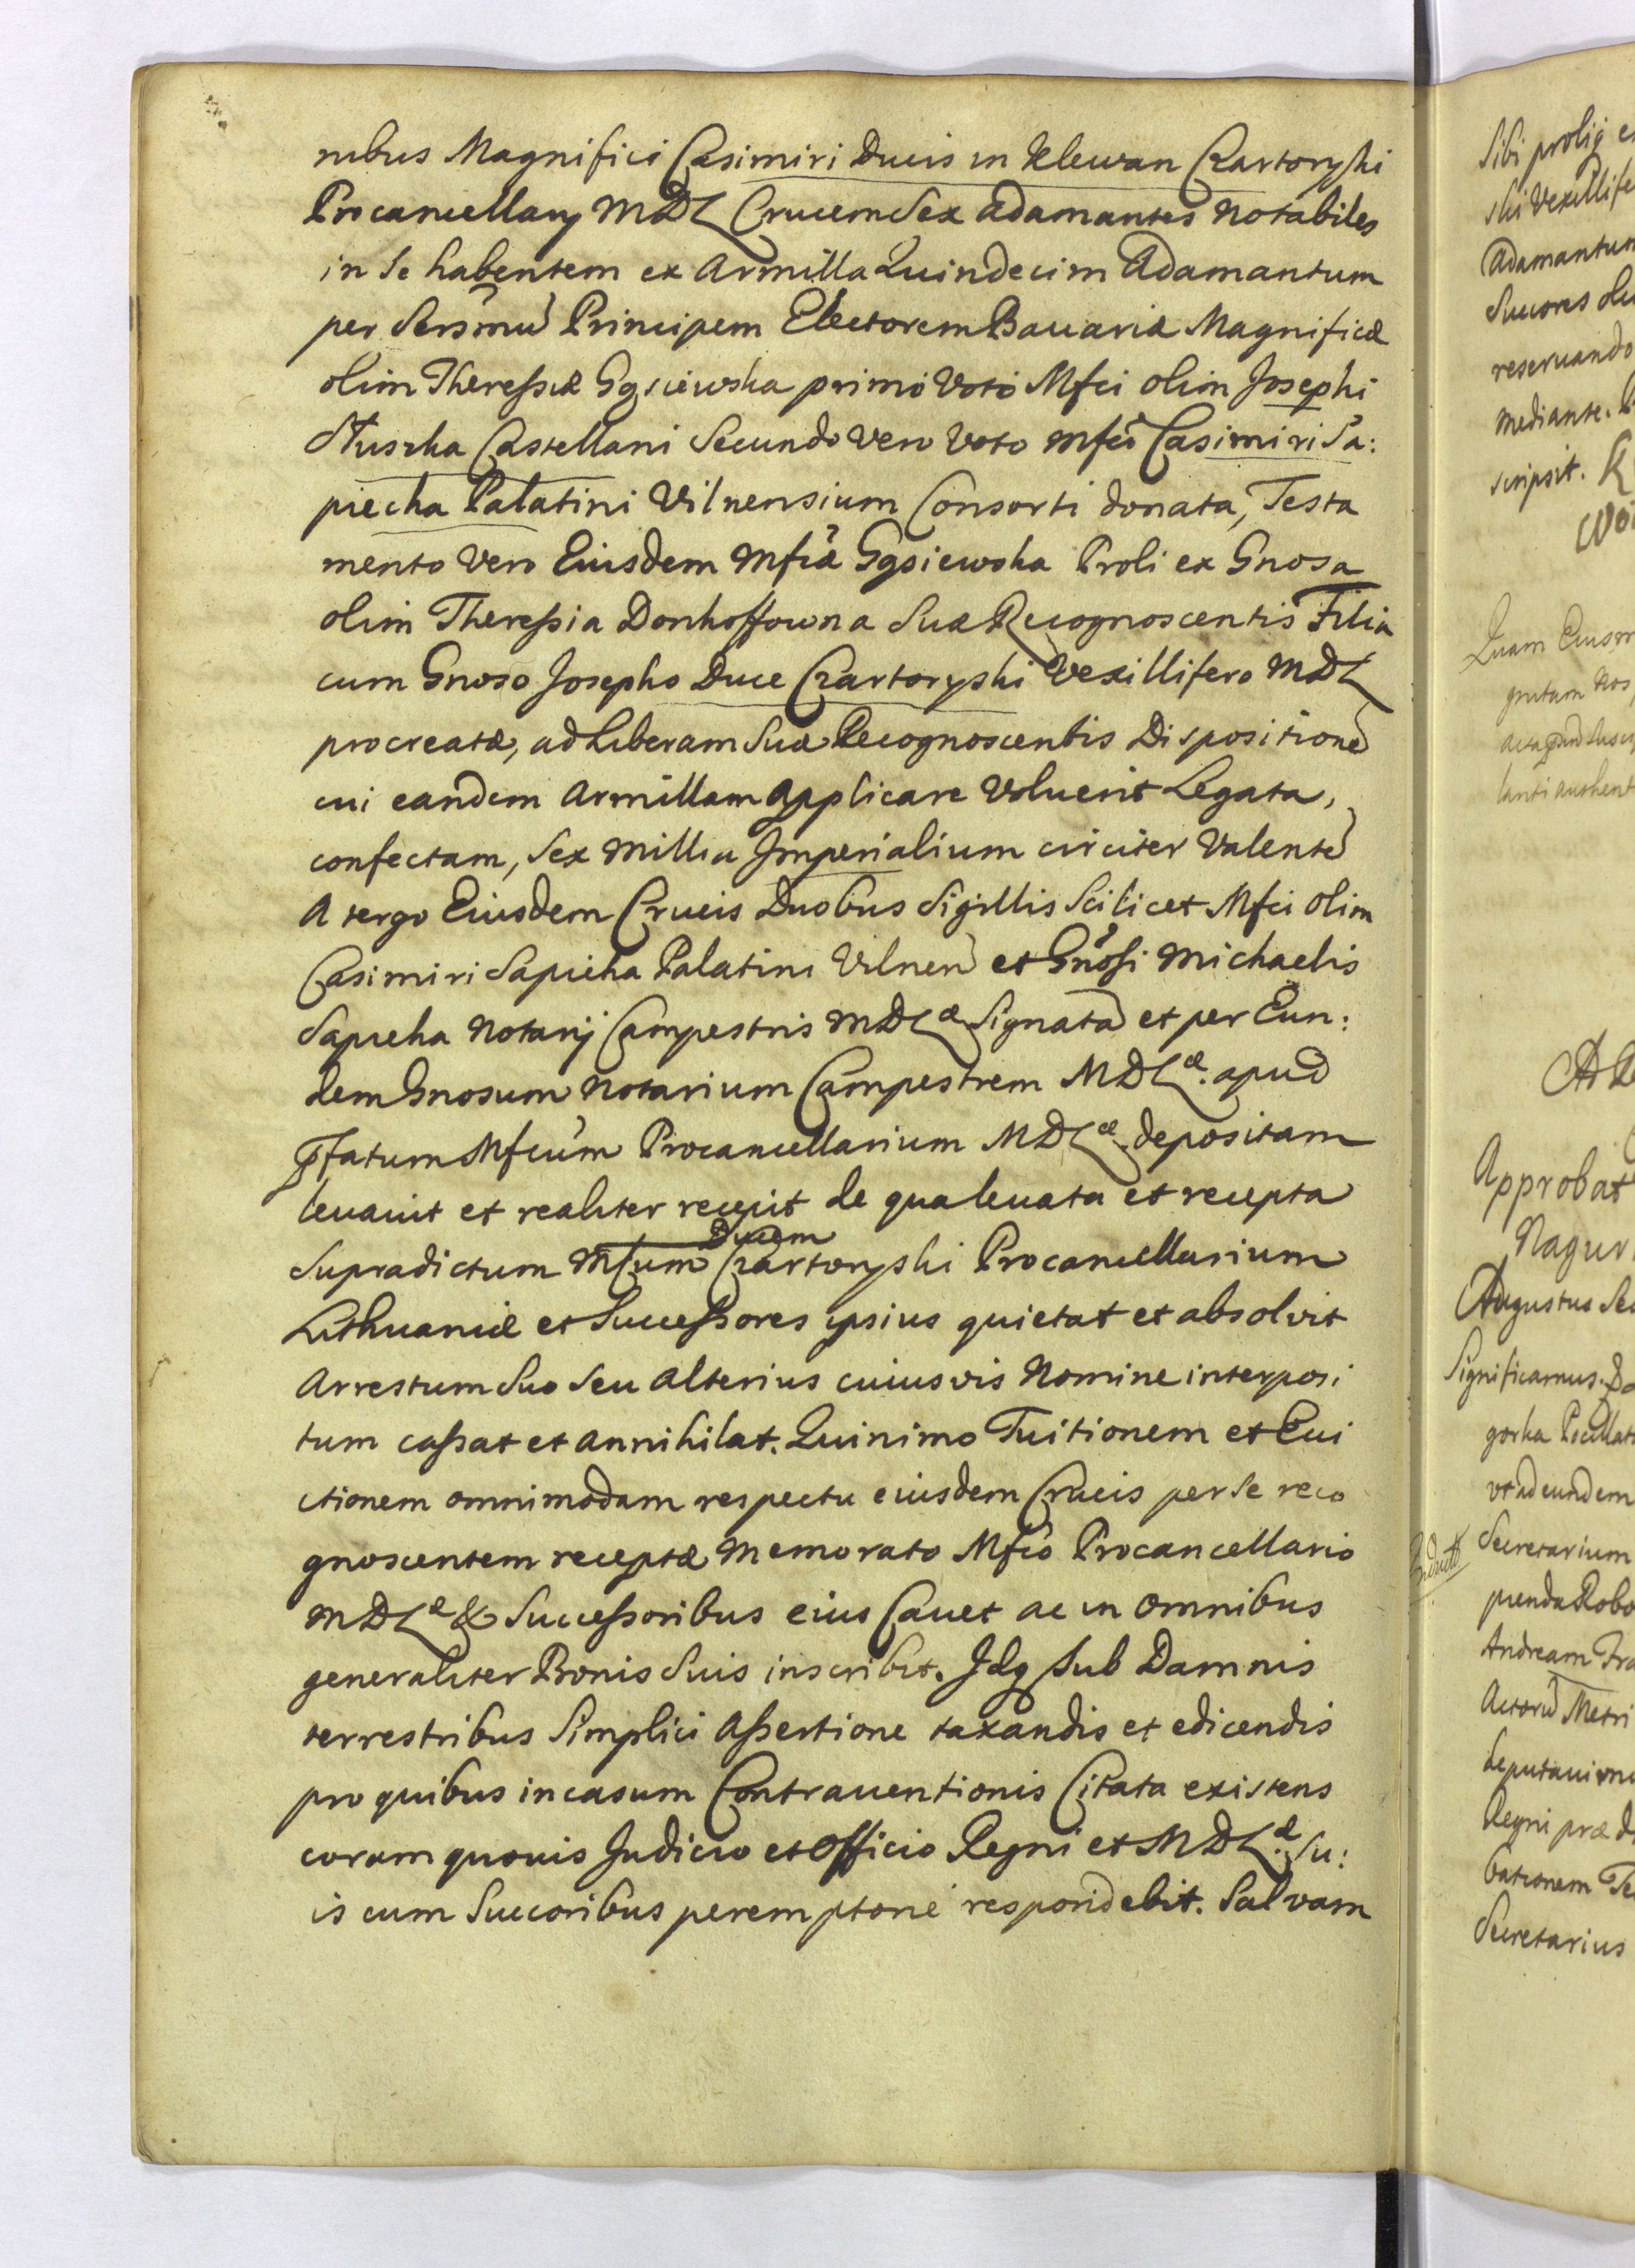 nibus Magnifici Casimiri Ducis in Klewan Czartoryski
Procancellarij MDL Crucem Sex adamantes notabiles
in se habentem ex Armilla Quindecim Adamantum
per Sersmũ Principem Electorem Bavariæ Magnificæ
olim Theressiæ Gąsiewska primo Voto Mfci olim Josephi
Słuszka Castellani Secundo vero Voto Mfci Casimiri Sa:
piecha Palatini Vilnensium Consorti donata, Testa
mento vero Eiusdem Mfcæ Gąsiewska Proli ex Gnosa
olim Theressia Donhoffowna Suæ Recognoscentis Filia
cum Gnoso Josepho Duce Czartoryski Vexillifero MDL
procreatæ, ad liberam Suæ Recognoscentis Dispositionẽ
cui eandem Armillam applicare Voluerit Legata,
confectam, Sex millia Imperialium circiter Valentẽ
A tergo Eiusdem Crucis Duobus Sigillis Scilicet Mfci olim
Casimiri Sapieha Palatini Vilnen et Gnosi Michaelis
Sapieha Notarij Campestris MDLæ Signatã et per Eun:
dem Gnosum Notarium Campestrem MDLæ. apud
Pfatum Mfcum Procancellarium MDLæ. depositam
levavit et realiter recepit de qua levata et recepta
Ducem
Supradictum Mfcum Czartoryski Procancellarium
Lithuaniæ et Successores ipsius quietat et absolvit
Arrestum Suo Seu alterius cuiusvis Nomine interposi
tum cassat et annihilat. Quinimo Tuitionem et Evi
ctionem omnimodam respectu eiusdem Crucis per Se reco
gnoscentem receptæ memorato Mfco Procancellario
MDLæ & Successoribus eius Cavet ac in omnibus
generaliter Bonis Suis inscribit. Idq sub Damnis
terrestribus Simplici Assertione taxandis et edicendis
pro quibus in casum Contraventionis Citata existens
coram quovis Judicio et Officio Regni et MDLæ. Su:
is cum Succoribus peremptorie respondebit. Salvam
Sibi prolig
ski Vexillife
Adamantum
Succores
reservando
mediante.
scripsit.
Quam Eiusm
Approbat
Nagur
Augustus Se
Significamus.
gorka
vt ad eundem
Secretarium
Andream Fra
Actorũ Metri
deputavimu
Regni præ d
bationem Te
Secretarius